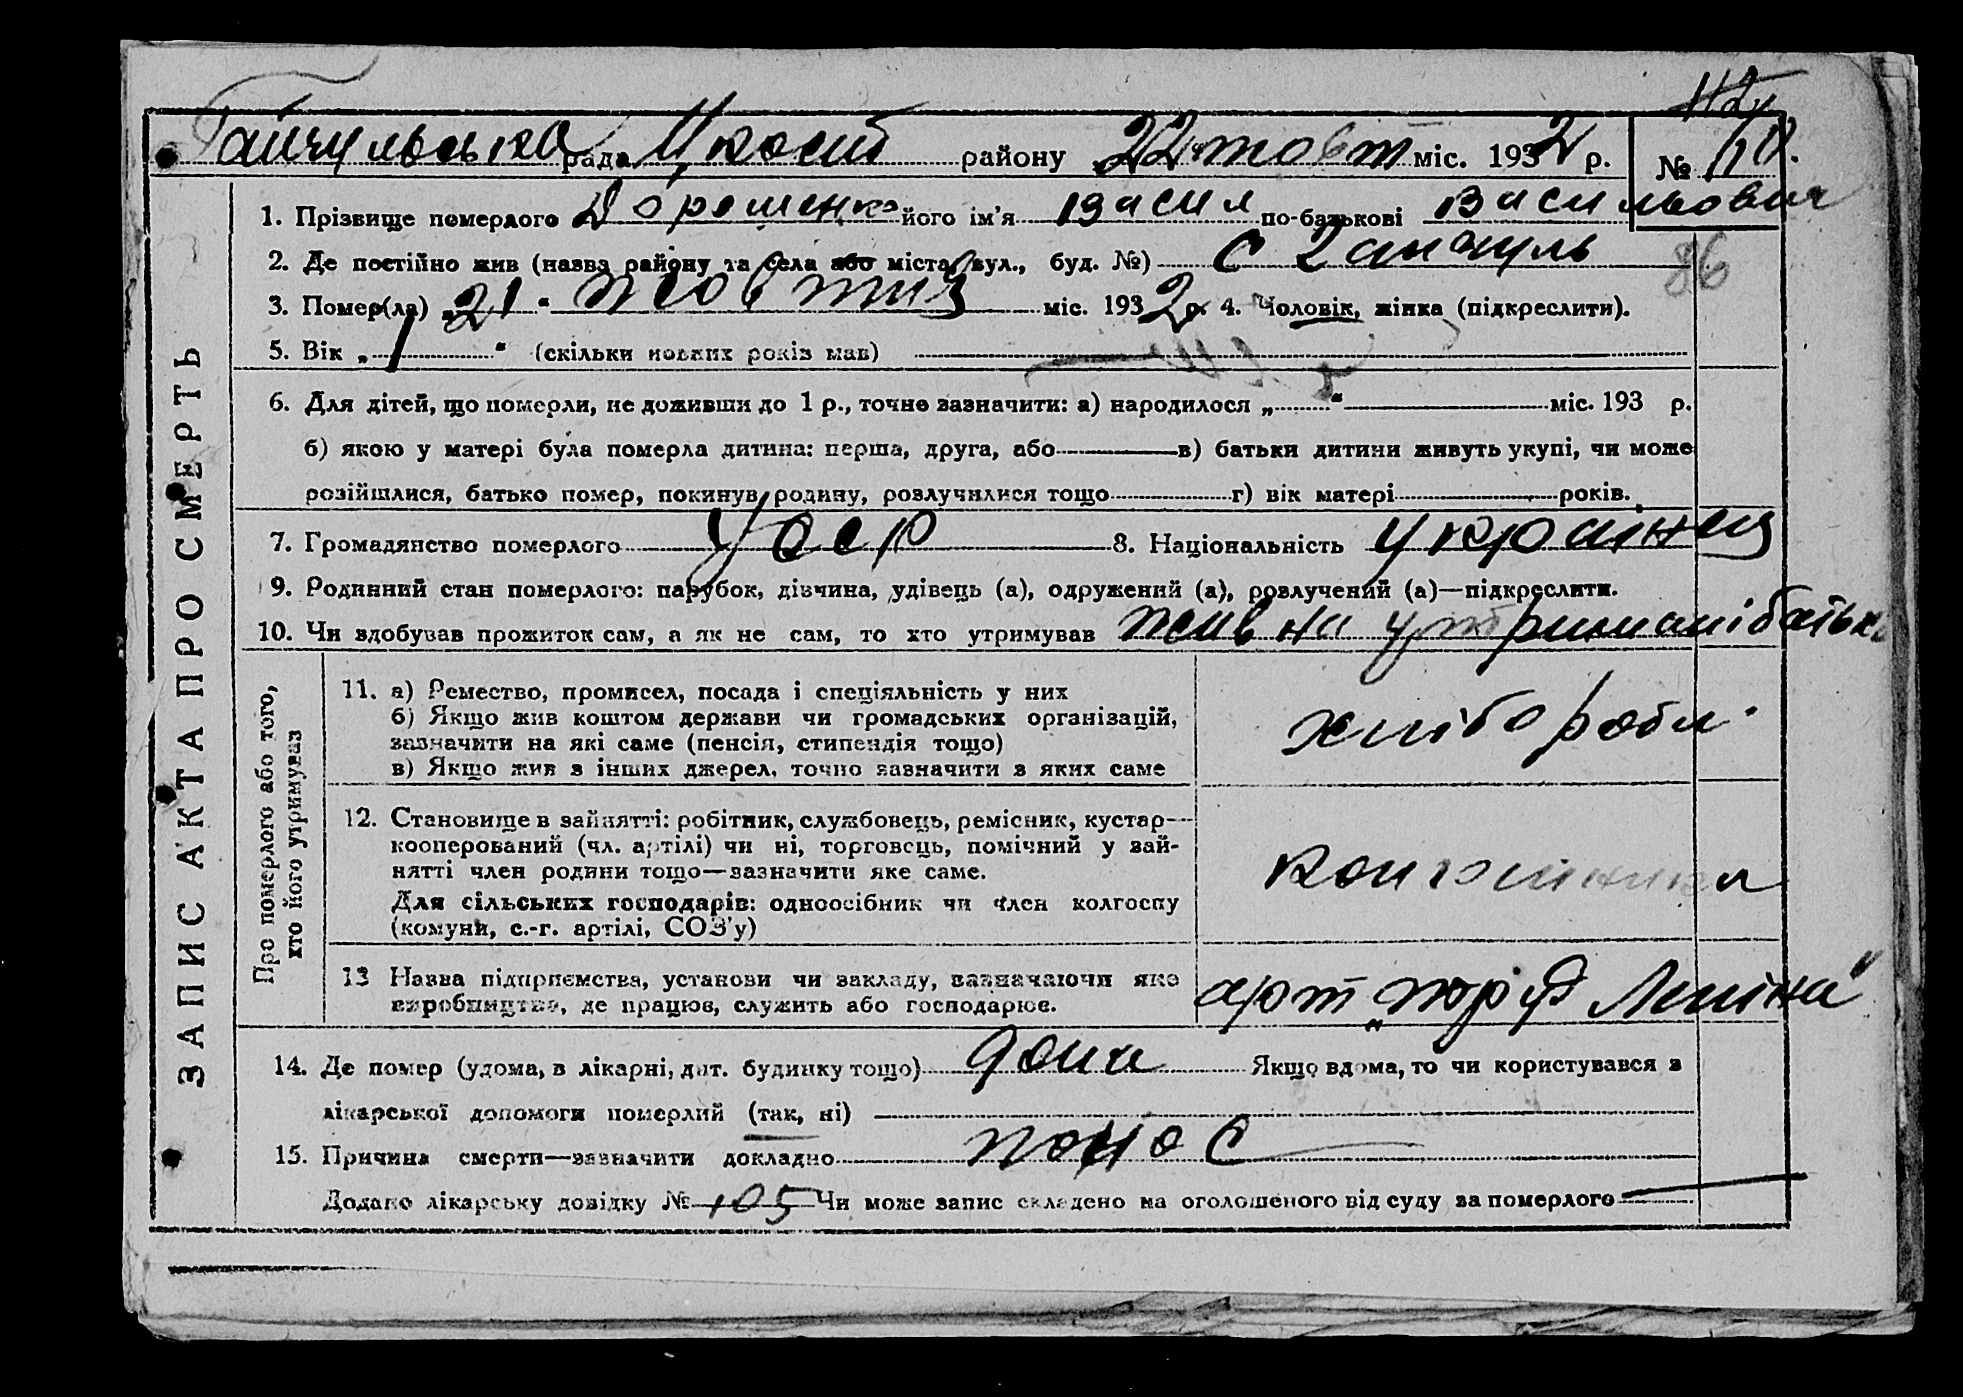 Гайчульська рада району 22 жовт міс. 1932 р. №
1. Прізвище померлого Дорошенко його ім'я Василь по-батькові Васильович
2. Де постійно жив (назва району та села або міста, вул., буд. №) с Гайчуль
86
3. Помер(ла) „21“ жовтня міс. 1932 р. 4. Чоловік, жінка (підкреслити).
5. Вік „1“ (скільки повних років мав)
6. Для дітей, що померли, не доживши до 1 р., точно зазначити: а) народилося „ “ міс. 193 р.
б) якою у матері була померла дитина: перша, друга, або в) батьки дитини живуть укупі, чи може
розійшлися, батько помер, покинув родину, розлучилися тощо г) вік матері років.
7. Громадянство померлого УССР 8. Національність українец
9. Родинний стан померлого: парубок, дівчина, удівець (а), одружений (а), розлучений (а)—підкреслити.
10. Чи здобував прожиток сам, а як не сам, то хто утримував жив на утримані батька
ЗАПИС АКТА ПРО СМЕРТЬ
Про померлого або того,
хто його утримував
11. а) Ремество, промисел, посада і спеціяльність у них
б) Якщо жив коштом держави чи громадських організацій,
зазначити на які саме (пенсія, стипендія тощо)
в) Якщо жив з інших джерел, точно зазначити з яких саме
хлібороби
12. Становище в зайнятті: робітник, службовець, ремісник, кустар—
кооперований (чл. артілі) чи ні, торговець, помічний у зай-
нятті член родини тощо—зазначити яке саме.
Для сільських господарів: одноосібник чи член колгоспу
(комуни, с.-г. артілі, СОЗ'у)
13 Назва підприємства, установи чи закладу, зазначаючи яке
виробництво, де працює, служить або господарює.
арт Леніна“
14. Де помер (удома, в лікарні, дит. будинку тощо) дома Якщо вдома, то чи користувався з
лікарської допомоги померлий (так, ні)
15. Причина смерти—зазначити докладно понос
Додано лікарську довідку № 105 Чи може запис складено на оголошеного від суду за померлого